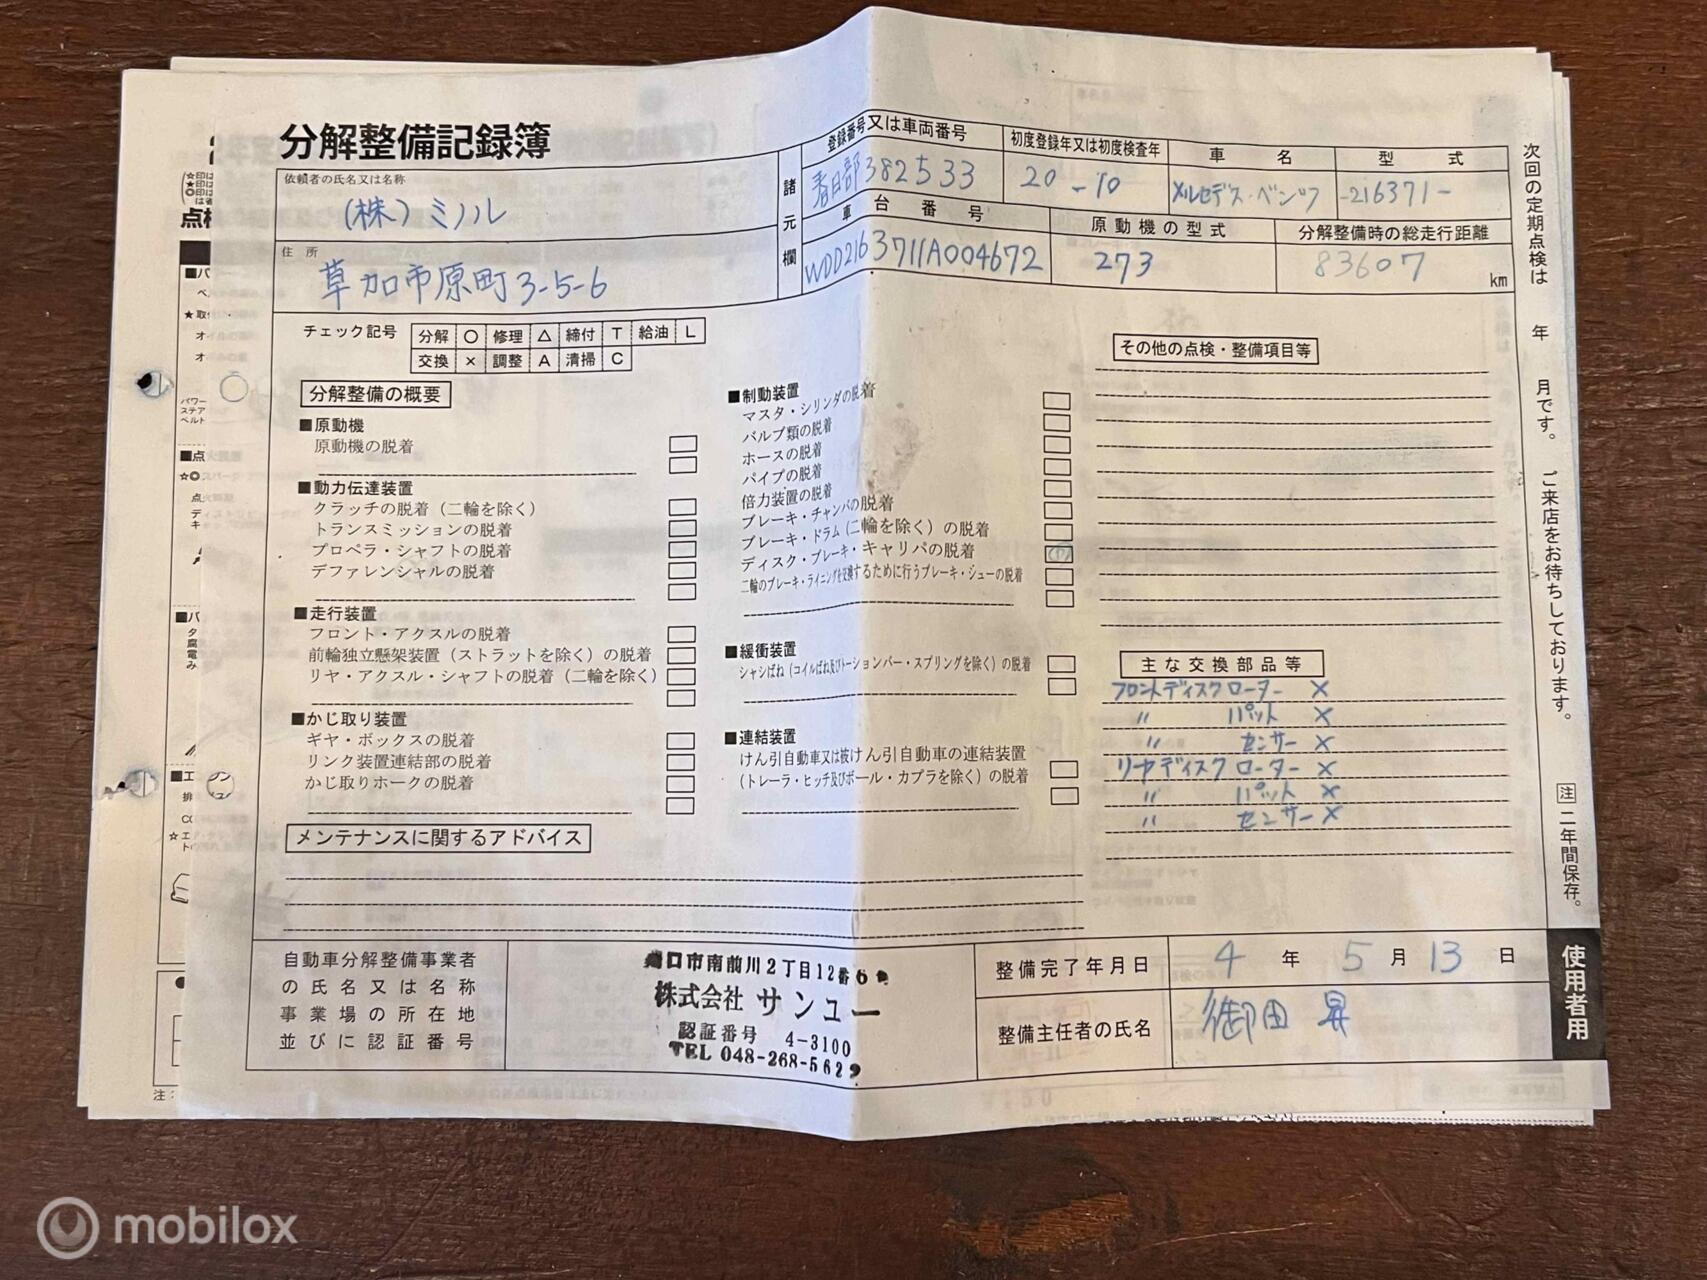 分解整備記録簿
依頼者の氏名又は名称
(株)ミノル
住所
草加市原町3-5-6
諸元欄
登録番号又は車両番号
春日部 382533
初度登録年又は初度検査年
20-10
車名
メルセデス・ベンツ
型式
-216371-
車台番号
WDD2163711A004672
原動機の型式
273
分解整備時の総走行距離
83607 km
チェック記号
分解 ○ 修理 △ 締付 T 給油 L
交換 × 調整 A 清掃 C
分解整備の概要
■原動機
原動機の脱着
■動力伝達装置
クラッチの脱着(二輪を除く)
トランスミッションの脱着
プロペラ・シャフトの脱着
デファレンシャルの脱着
■走行装置
フロント・アクスルの脱着
前輪独立懸架装置(ストラットを除く)の脱着
リヤ・アクスル・シャフトの脱着(二輪を除く)
■かじ取り装置
ギヤ・ボックスの脱着
リンク装置連結部の脱着
かじ取りホークの脱着
■制動装置
マスタ・シリンダの脱着
バルブ類の脱着
ホースの脱着
パイプの脱着
倍力装置の脱着
ブレーキ・チャンバの脱着
ブレーキ・ドラム(二輪を除く)の脱着
ディスク・ブレーキ・キャリパの脱着
二輪のブレーキ・ライニングを交換するために行うブレーキ・シューの脱着
■緩衝装置
シャシばね(コイルばね及びトーションバー・スプリングを除く)の脱着
■連結装置
けん引自動車又は被けん引自動車の連結装置
(トレーラ・ヒッチ及びボール・カプラを除く)の脱着
その他の点検・整備項目等
主な交換部品等
フロントディスクローター ×
〃 パット ×
〃 センサー ×
リヤディスクローター ×
〃 パット ×
〃 センサー ×
メンテナンスに関するアドバイス
自動車分解整備事業者
の氏名又は名称
事業場の所在地
並びに認証番号
口市南前川2丁目12番6
株式会社 サンユー
認証番号 4-3100
TEL 048-268-5629
整備完了年月日
4年5月13日
整備主任者の氏名
御田 昇
次回の定期点検は 年 月です。ご来店をお待ちしております。
注 二年間保存。
使用者用
点検
パワー
ステア
ベルト
注:
mobilox